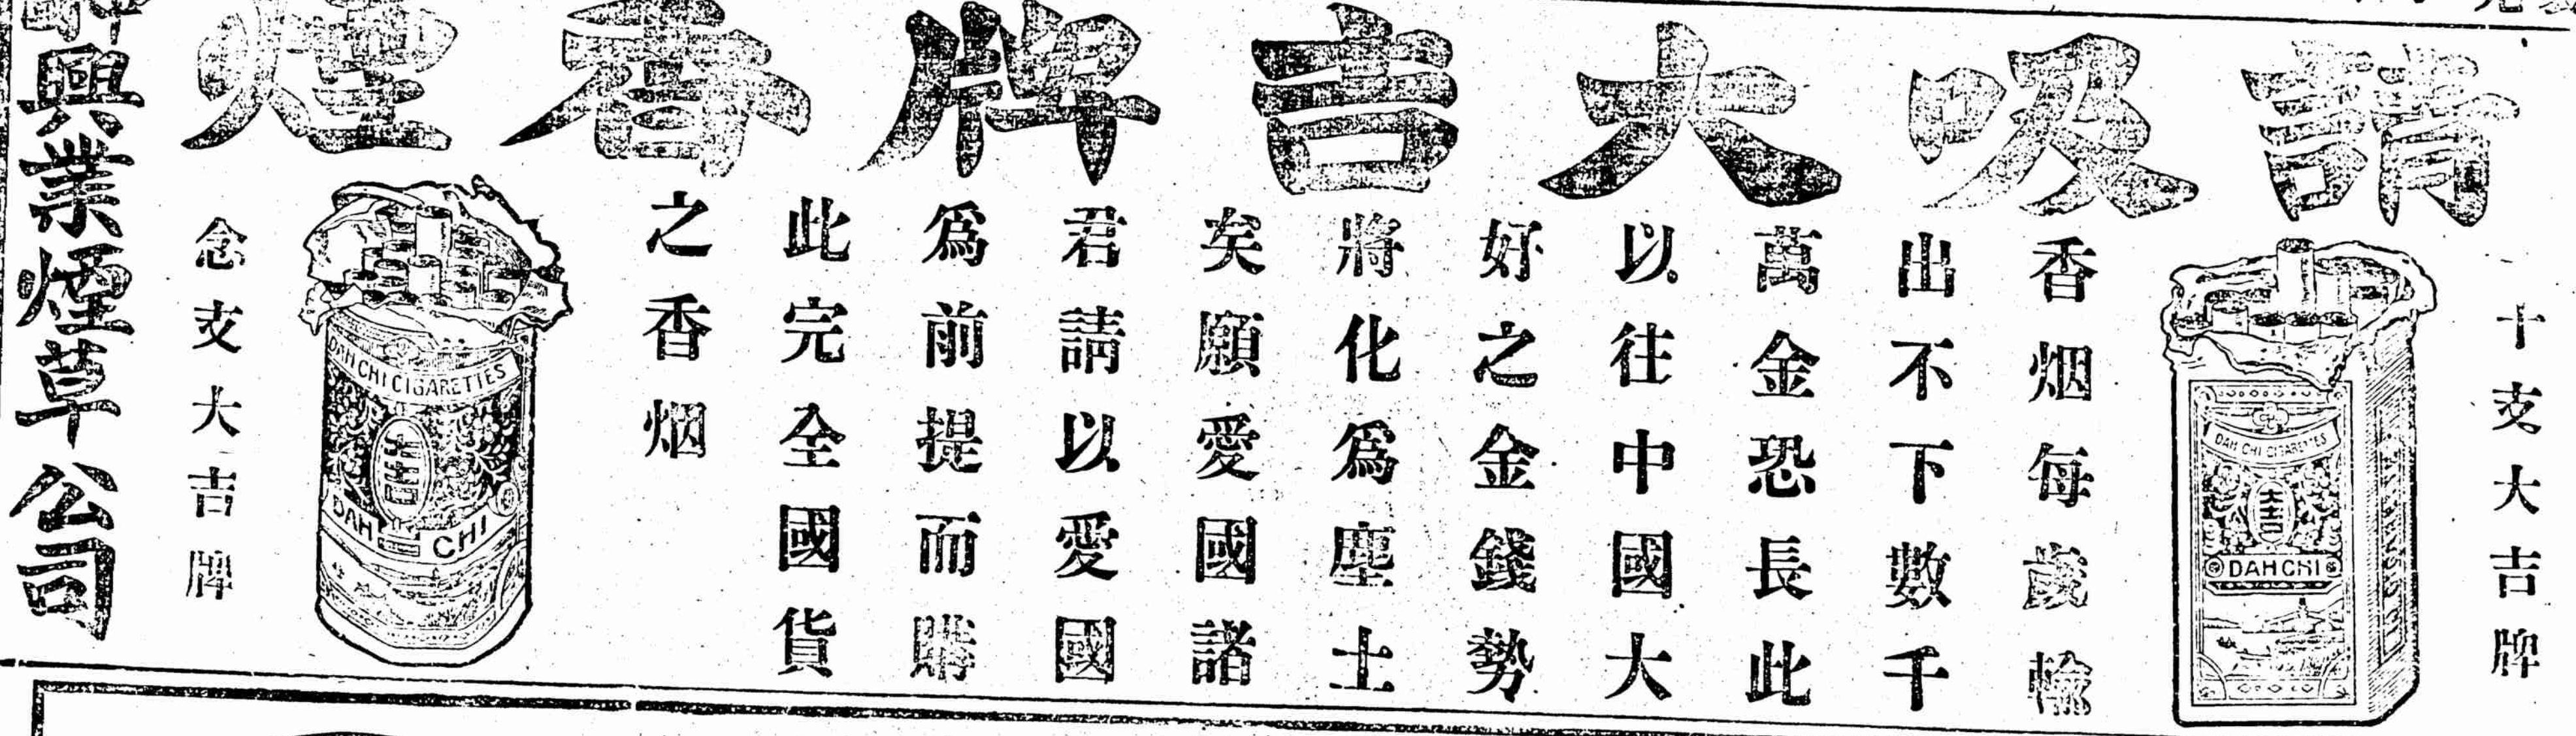 請吸大吉牌香煙
十支大吉牌
DAH CHI CIGARETTES
大吉
DAHCHI
香烟每歲輸
出不下數千
萬金恐長此
以往中國大
好之金錢勢
將化爲塵土
矣願愛國諸
君請以愛國
爲前提而購
此完全國貨
之香烟
DAH CHI CIGARETTES
大吉
DAH CHI
念支大吉牌
興業煙草公司